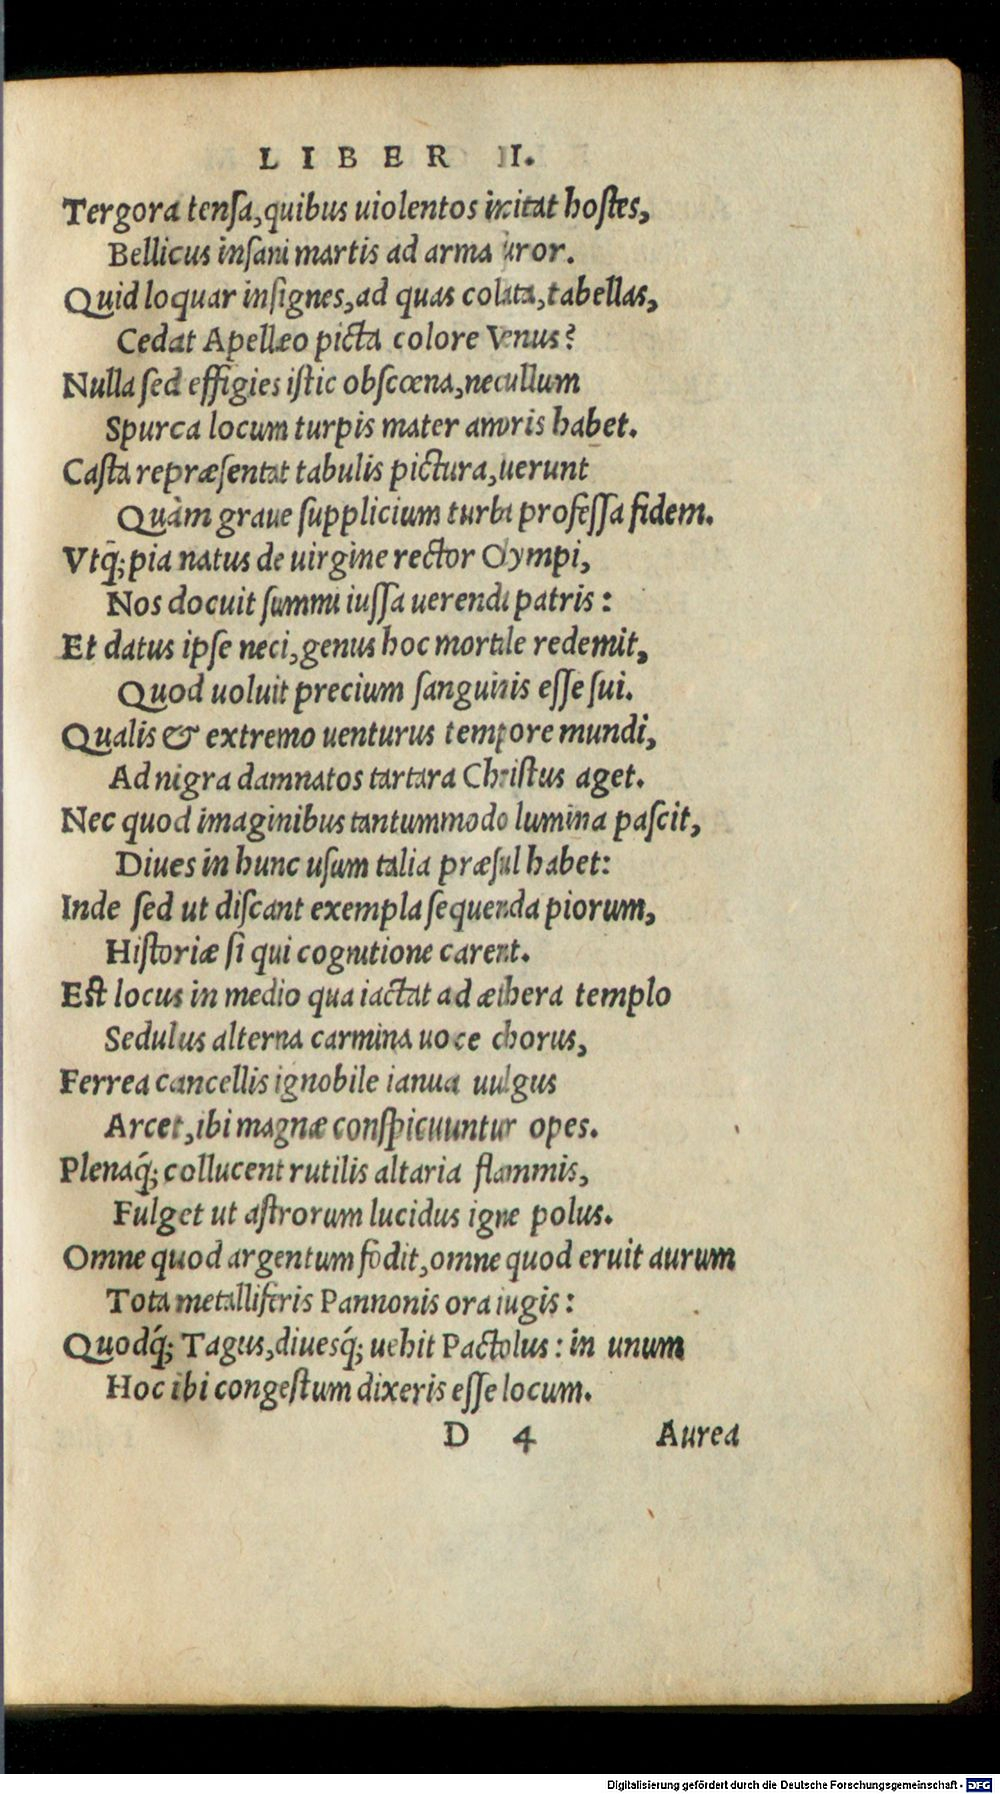 LIBER II.
Tergora tensa, quibus uiolentos incitat hostes,
Bellicus insani martis ad arma furor.
Quid loquar insignes, ad quas colata, tabellas,
Cedat Apelleo picta colore Venus?
Nulla sed effigies istic obscœna, nec ullum
Spurca locum turpis mater amoris habet.
Casta repræsentat tabulis pictura, uerunt
Quàm graue supplicium turba professa fidem.
Vtq́; pia natus de uirgine rector Olympi,
Nos docuit summi iussa uerendi patris:
Et datus ipse neci, genus hoc mortale redemit,
Quod uoluit precium sanguinis esse sui.
Qualis & extremo uenturus tempore mundi,
Ad nigra damnatos tartara Christus aget.
Nec quod imaginibus tantummodo lumina pascit,
Diues in hunc usum talia præsul habet:
Inde sed ut discant exempla sequenda piorum,
Historiæ si qui cognitione carent.
Est locus in medio qua iactat ad æthera templo
Sedulus alterna carmina uoce chorus,
Ferrea cancellis ignobile ianua uulgus
Arcet, ibi magnæ conspicuuntur opes.
Plenaq́; collucent rutilis altaria flammis,
Fulget ut astrorum lucidus igne polus.
Omne quod argentum fodit, omne quod eruit aurum
Tota metalliferis Pannonis ora iugis:
Quodq́; Tagus, diuesq́; uehit Pactolus: in unum
Hoc ibi congestum dixeris esse locum.
D 4 Aurea
Digitalisierung gefördert durch die Deutsche Forschungsgemeinschaft - DFG